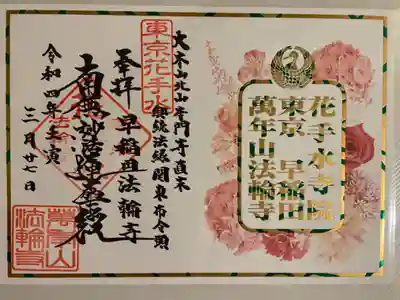 花手水寺院
東京 早稲田
萬年山法輪寺
大本山北山本門寺直末
御統法縁関東布令頭
東京花手水
奉拝 早稲田法輪寺
南無妙法蓮華経
法輪
令和四年壬寅
三月廿七日
萬年山
法輪寺